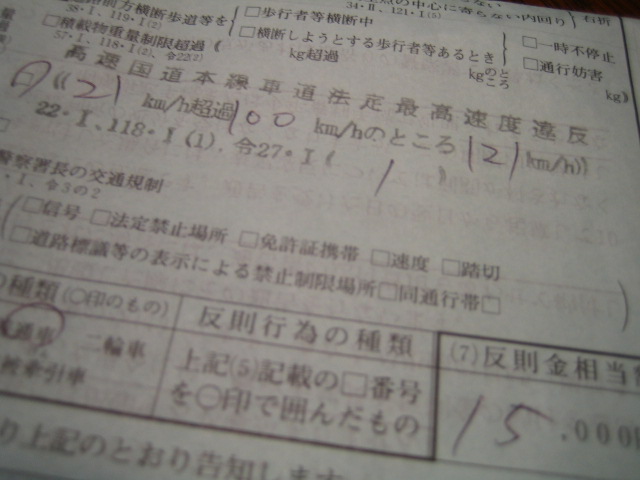 側方横断歩道等を
38・I、119・I(2)
□歩行者等横断中
中心に寄らない内回り
右折
34・II、121・I(5)
□積載物重量制限超過
57・I、118・I(2)、令22(7)
□横断しようとする歩行者等あるとき
□一時不停止
kg超過
kgのところ
□通行妨害
kg》
高速国道本線車道法定最高速度違反
《(21 km/h超過 100 km/hのところ 121 km/h)》
22・I、118・I(1)、令27・I(1)
警察署長の交通規制
・I、令3の2
□信号 □法定禁止場所 □免許証携帯 □速度 □踏切
□道路標識等の表示による禁止制限場所 □同通行帯 □
の種類(○印のもの)
反則行為の種類
(7)反則金相当
通車 二輪車
上記(5)記載の□番号
を○印で囲んだもの
被牽引車
15,000
り上記のとおり告知します